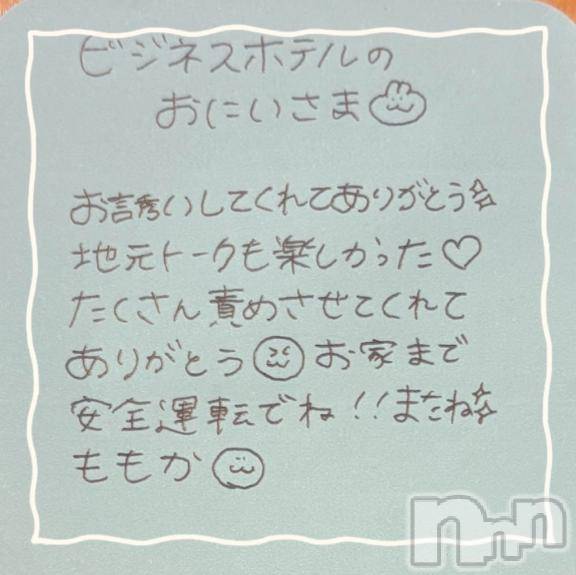 ビジネスホテルの
おにいさま
お誘いしてくれてありがとう☆
地元トークも楽しかった♡
たくさん責めさせてくれて
ありがとう お家まで
安全運転でね!!またね☆
ももか
nnn